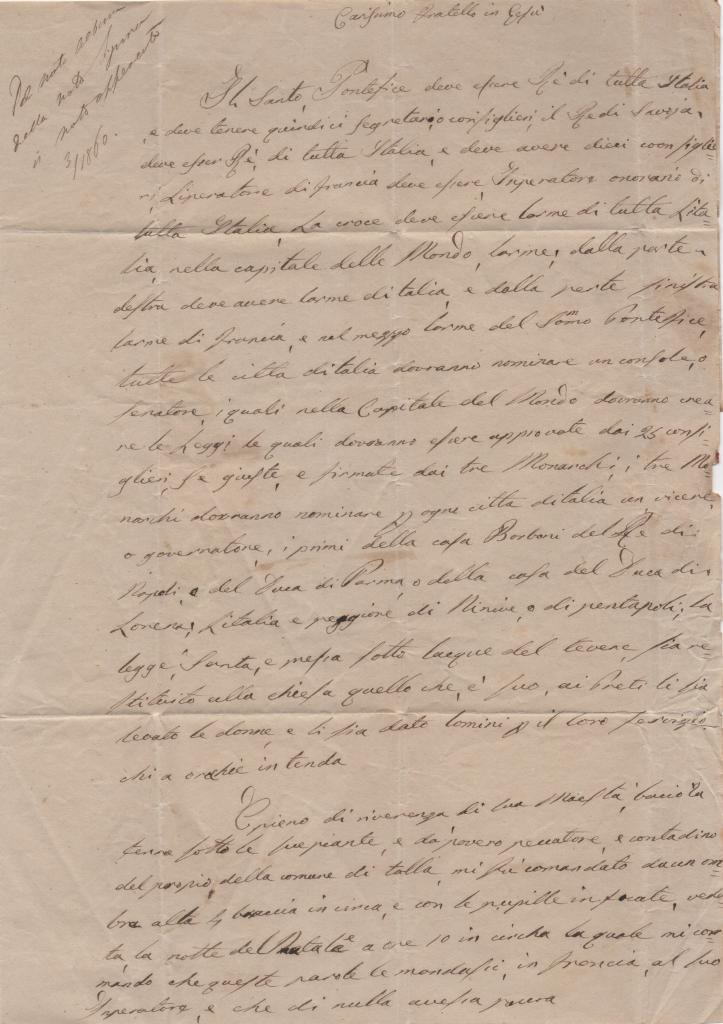 Carissimo fratello in Gesù
dalla nota
3/1860.
Il Santo, Pontefice deve essere Rè di tutta Italia
e deve tenere quindici segretario consiglieri, il Re di Savoja,
deve esser Rè, di tutta Italia, e deve avere dieci consiglie=
ri, Linperatore di francia deve essere, Inperatore onorario di
tutta Italia, La croce deve essere larme di tutta Lita=
lia, nella capitale delle Mondo, larme, dalla parte
destra deve avere larme ditalia, e dalla parte sinistra
larme di francia, e nel mezzo larme del Somo Pontefice,
tutte le citta ditalia dovranno nominare un console, o
senatore, i quali nella Capitale del Mondo dovranno crea=
re le Leggi le quali dovranno essere approvate dai 25 consi=
glieri, se giuste, e firmate dai tre Monarchi, i tre Mo=
narchi dovranno nominare p ogne citta ditalia un vicere,
o governatore, i primi della casa Borboni del Rè di
Napoli, o del Duca di Parma, o della casa del Duca di
Lorena, Litalia e peggiore di Ninive, o di pentapoli, La
legge, Santa, e messa sotto lacque del tevere, sia re=
stituito alla chiesa quello che, è suo, ai Preti li sia
levato le donne, e li sia dato lomini p il loro servigio
chi a orechie intenda
E pieno di riverenza di sua Maestà, bacio la
terra sotto le sue piante, e da povero peccatore, e contadino
del propio, della comune di talla, mi fu comandato da un om=
bra alta 4 braccia in circa, e con le pupille infocate, vedu=
ta, la notte del Natale a ore 10 in circha la quale mi co=
mando che queste parole le mandassi, in francia, al suo
Inperatore, e che di nulla avessa paura